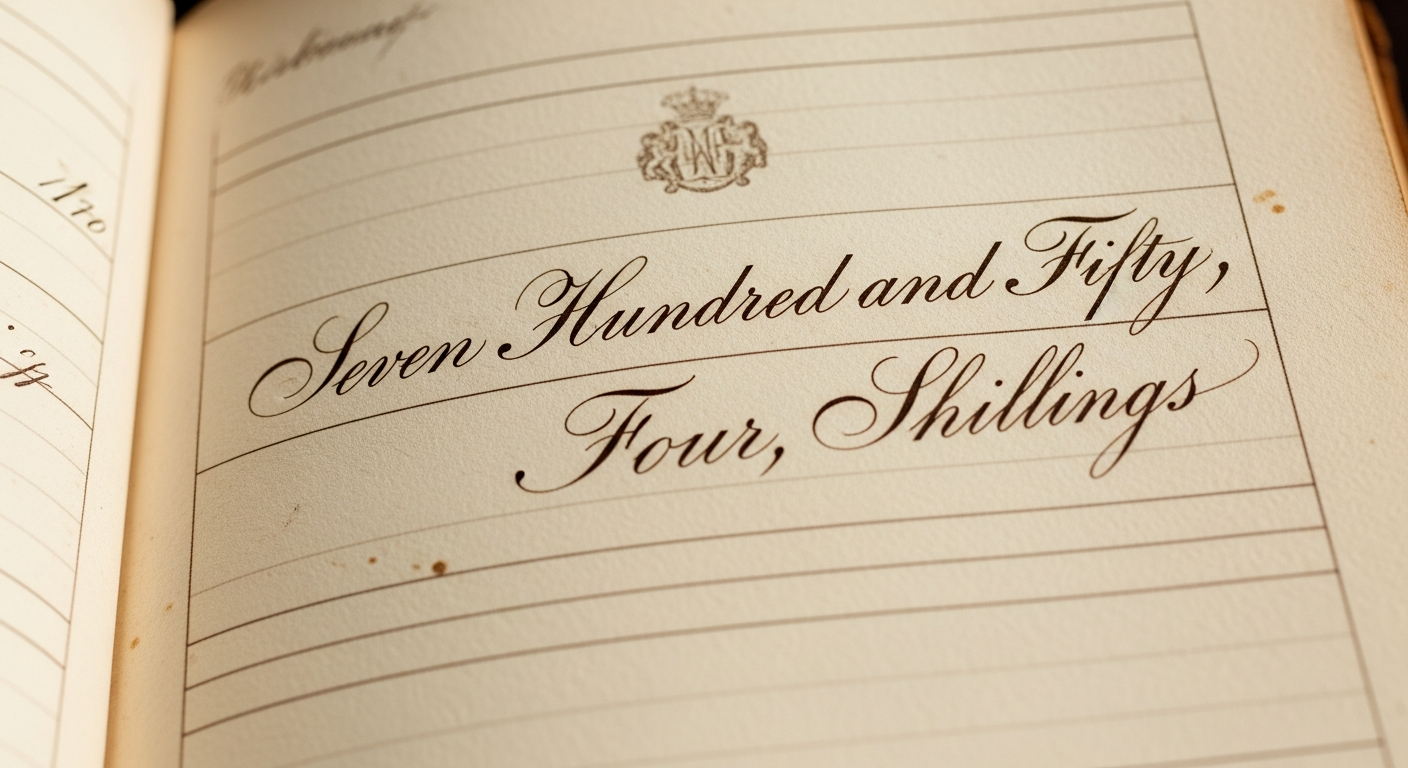 Seven Hundred and Fifty,
Four, Shillings